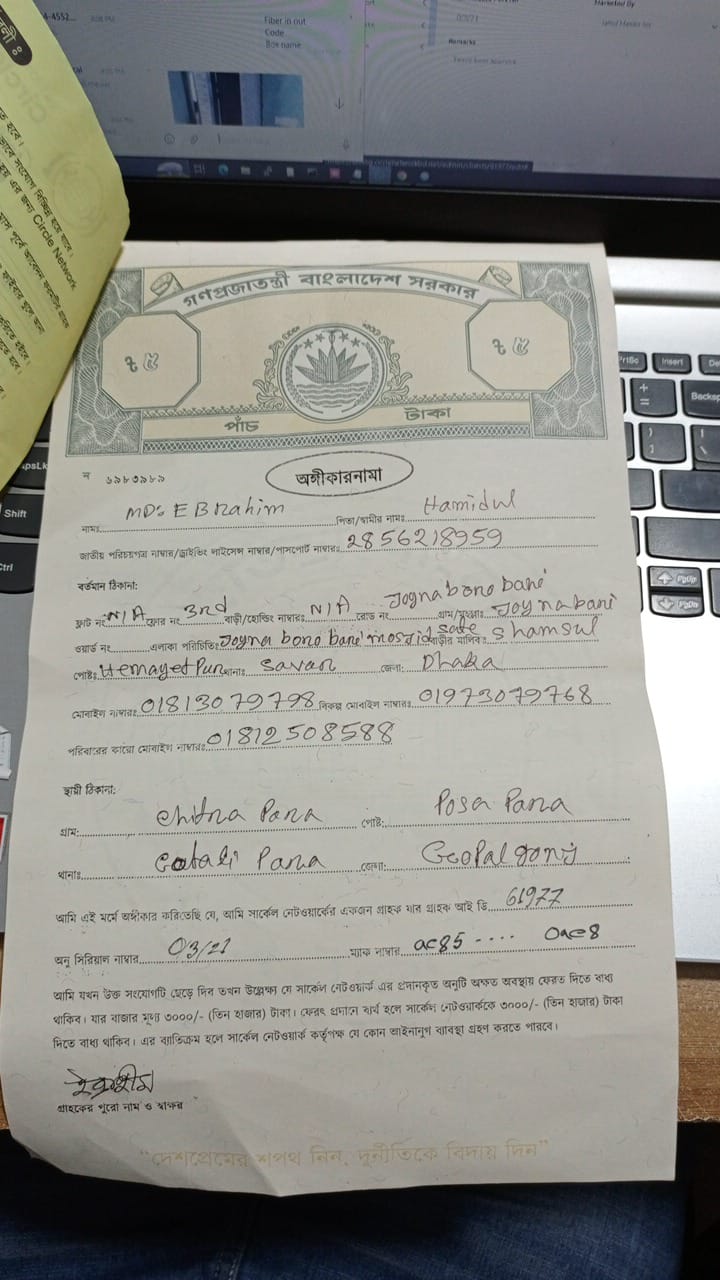 Fiber in out
Code
Box name
Remarks
PrtSc
Insert
Backsp
PgUp
PgDn
Shift
Circle Network
গণপ্রজাতন্ত্রী বাংলাদেশ সরকার
৳ ৫
৳ ৫
পাঁচ টাকা
ন ৬৯৮৩৯৮৯
অঙ্গীকারনামা
নামঃ MD: EBRahim পিতা/স্বামীর নামঃ Hamidul
জাতীয় পরিচয়পত্র নাম্বার/ড্রাইভিং লাইসেন্স নাম্বার/পাসপোর্ট নাম্বারঃ 2856218959
বর্তমান ঠিকানা:
ফ্লাট নং N/A ফ্লোর নং 3rd বাড়ী/হোল্ডিং নাম্বারঃ N/A রোড নং Joynabono bani গ্রাম/মহল্লাঃ Joynabani
ওয়ার্ড নং এলাকা পরিচিতিঃ Joyna bono bani mosjid safe বাড়ীর মালিকঃ Shamsul
পোষ্টঃ HemayetPur থানাঃ Savar জেলা: Dhaka
মোবাইল নাম্বারঃ 01813079798 বিকল্প মোবাইল নাম্বারঃ 01973079768
পরিবারের কারো মোবাইল নাম্বারঃ 01812508588
স্থায়ী ঠিকানা:
গ্রাম: Chitra Para পোষ্ট: Posa Para
থানাঃ Cotali Para জেলা: GeoPalgonj
আমি এই মর্মে অঙ্গীকার করিতেছি যে, আমি সার্কেল নেটওয়ার্কের একজন গ্রাহক যার গ্রাহক আই ডি 61977
অনু সিরিয়াল নাম্বার 03/21 ম্যাক নাম্বার ac85 .... 0ae8
আমি যখন উক্ত সংযোগটি ছেড়ে দিব তখন উল্লেক্ষ্য যে সার্কেল নেটওয়ার্ক এর প্রদানকৃত অনুটি অক্ষত অবস্থায় ফেরত দিতে বাধ্য
থাকিব। যার বাজার মূল্য ৩০০০/- (তিন হাজার) টাকা। ফেরৎ প্রদানে ব্যর্থ হলে সার্কেল নেটওয়ার্ককে ৩০০০/- (তিন হাজার) টাকা
দিতে বাধ্য থাকিব। এর ব্যাতিক্রম হলে সার্কেল নেটওয়ার্ক কর্তৃপক্ষ যে কোন আইনানুগ ব্যাবস্থা গ্রহণ করতে পারবে।
ইব্রাহীম
গ্রাহকের পুরো নাম ও স্বাক্ষর
"দেশপ্রেমের শপথ নিন, দুর্নীতিকে বিদায় দিন"